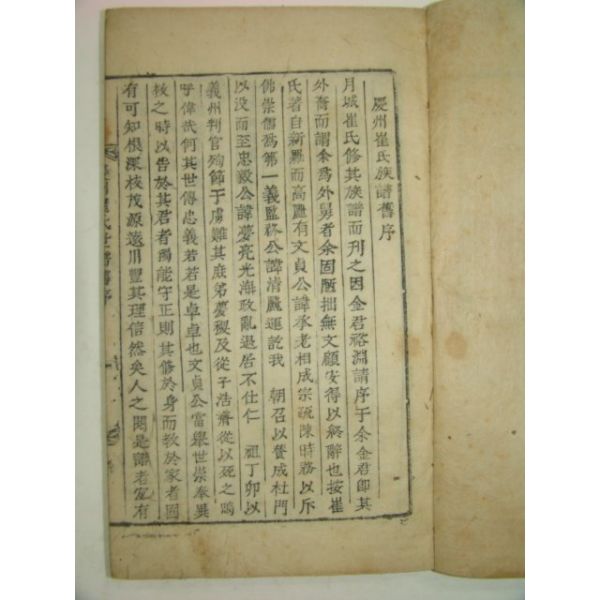 慶州崔氏族譜舊序
月城崔氏修其族譜而刊之因金君裕淵請序于余金君卽其
外裔而謂余爲外舅者余固陋拙無文顧安得以終辭也按崔
氏著自新羅而高麗有文貞公諱承老相成宗疏陳時務以斥
佛崇儒爲第一義監務公諱淸麗運訖我 朝召以贊成杜門
以没而至忠毅公諱夢亮光海政亂退居不仕仁 祖丁卯以
義州判官殉節于虜難其庶弟夢稷及從子浩濟從以死之嗚
呼偉哉何其世傳忠義若若是卓卓也文貞公當擧世崇奉異
敎之時以告於其君者獨能守正則其修於身而敎於家者固
有可知根深枝茂源遠川豐其理信然矣人之閱是譜者寔有